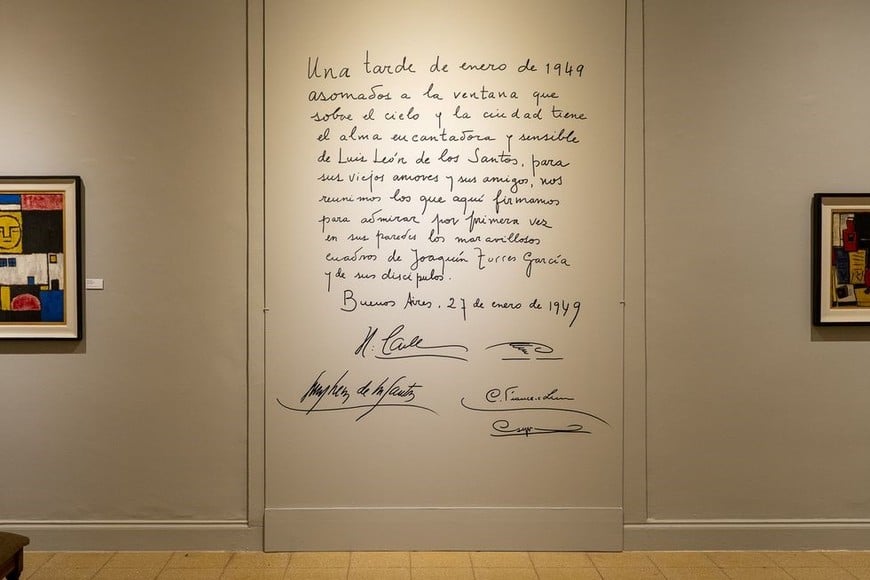 Una tarde de enero de 1949
asomados a la ventana que
sobre el cielo y la ciudad tiene
el alma encantadora y sensible
de Luis León de los Santos, para
sus viejos amores y sus amigos, nos
reunimos los que aquí firmamos
para admirar por primera vez
en sus paredes los maravillosos
cuadros de Joaquín Torres García
y de sus discípulos.
Buenos Aires, 27 de enero de 1949